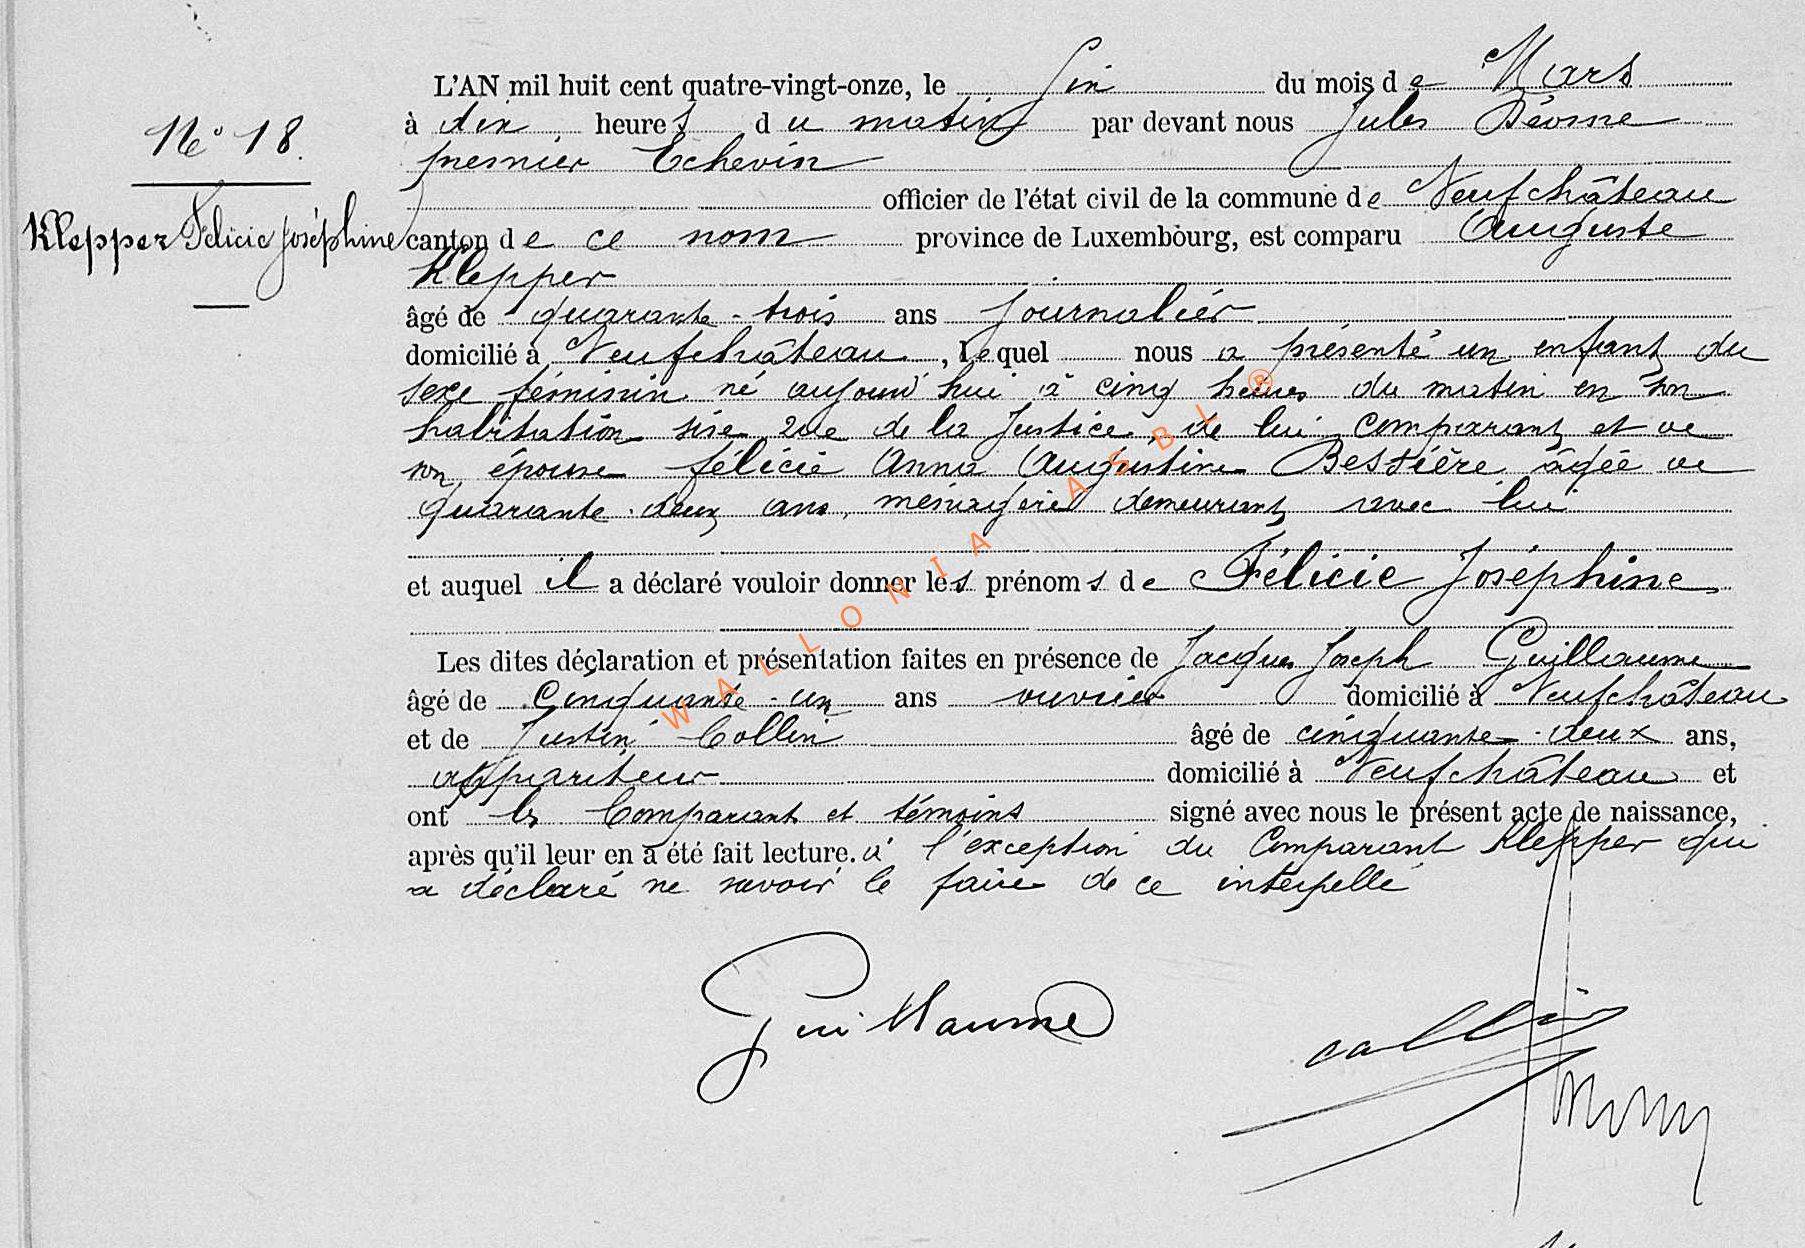 L'AN mil huit cent quatre-vingt-onze, le six du mois de Mars
N° 18.
à dix heures du matin par devant nous Jules
premier Echevin
officier de l'état civil de la commune de Neufchâteau
Klepper Félicie Joséphine
canton de ce nom province de Luxembourg, est comparu Auguste
Klepper
âgé de quarante-trois ans Journalier
domicilié à Neufchâteau, lequel nous a présenté un enfant du
sexe féminin né aujourd'hui à cinq heures du matin en son
habitation sise rue de la Justice, de lui comparant et de
son épouse félicie Anna Augustine Bessière âgée de
quarante-deux ans, ménagère demeurant avec lui
et auquel il a déclaré vouloir donner les prénoms de Félicie Joséphine
Les dites déclaration et présentation faites en présence de Jacques Joseph Guillaume
âgé de cinquante-un ans ouvrier domicilié à Neufchâteau
et de Justin Collin âgé de cinquante-deux ans,
appariteur domicilié à Neufchâteau et
ont les Comparant et témoins signé avec nous le présent acte de naissance,
après qu'il leur en a été fait lecture. à l'exception du Comparant Klepper qui
a déclaré ne savoir le faire de ce interpellé
Guillaume
collin
WALLONIA ASBL ®